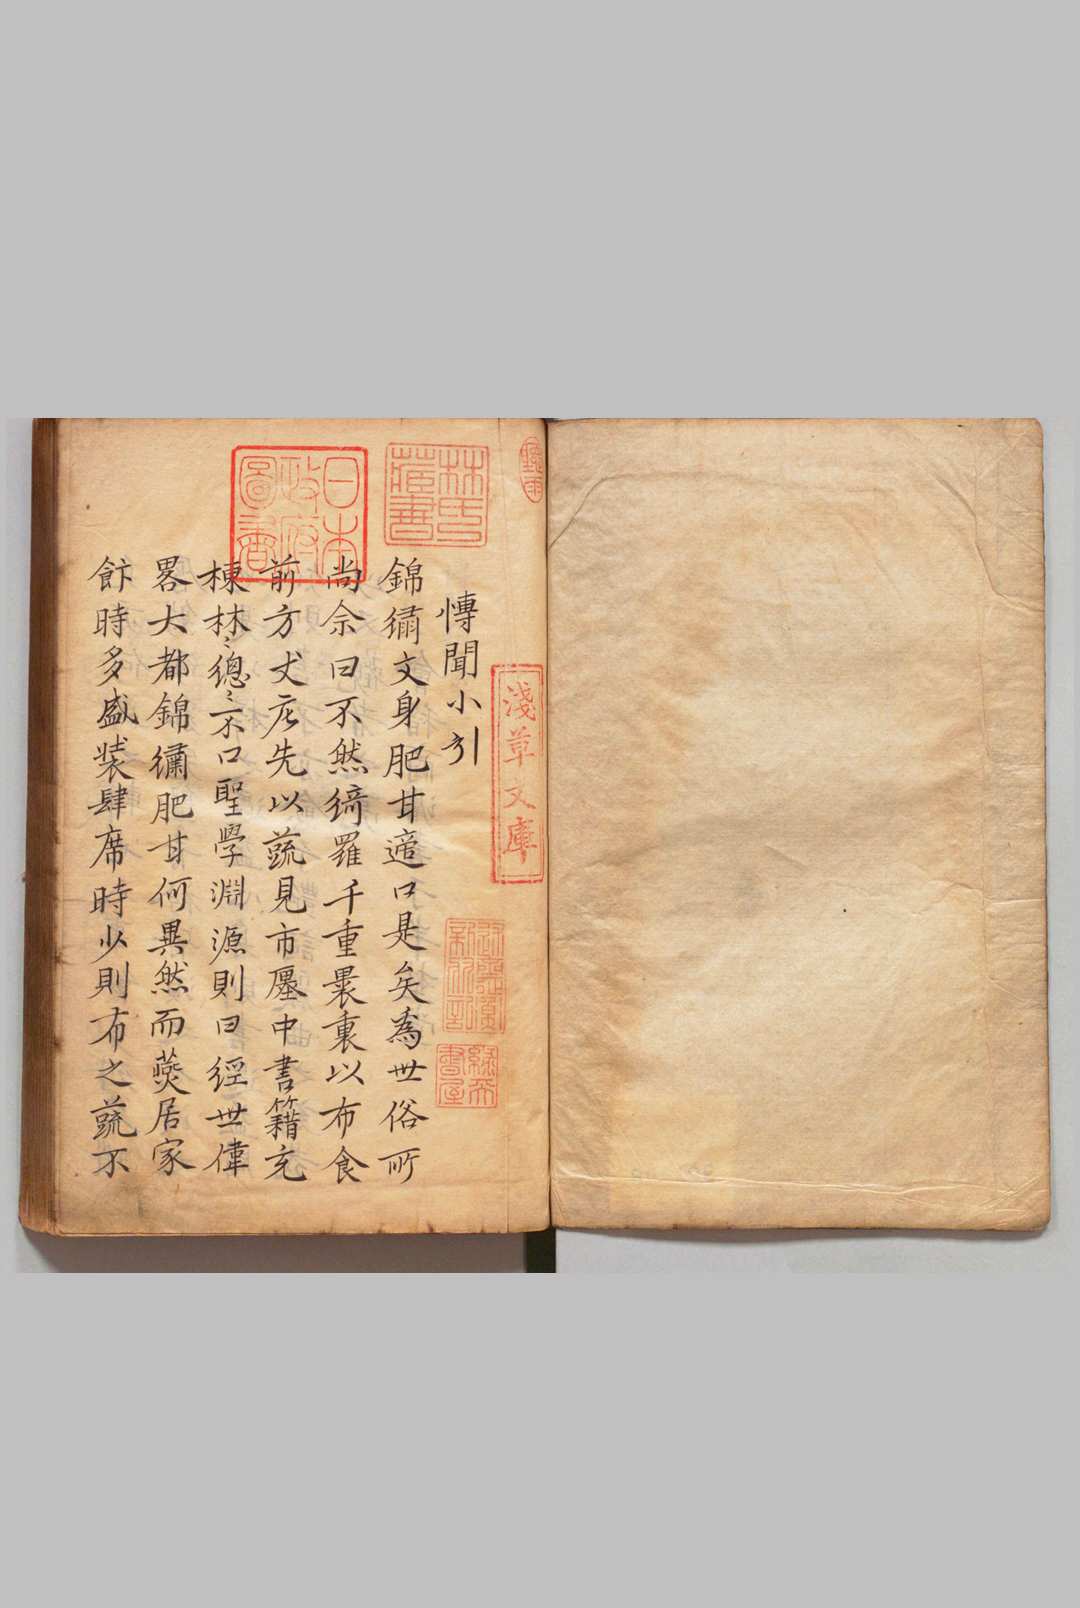 愽聞小引
錦綉文身肥甘適口是矣為世俗所
尚余曰不然綺羅千重褁裏以布食
前方丈庀先以蔬見市廛中書籍充
棟林〻總〻不曰聖學淵源則曰經世偉
畧大都錦繡肥甘何異然而燕居家
飰時多盛裝肆席時少則布之蔬不
日本
政府
圖書
林氏
藏書
淺草文庫